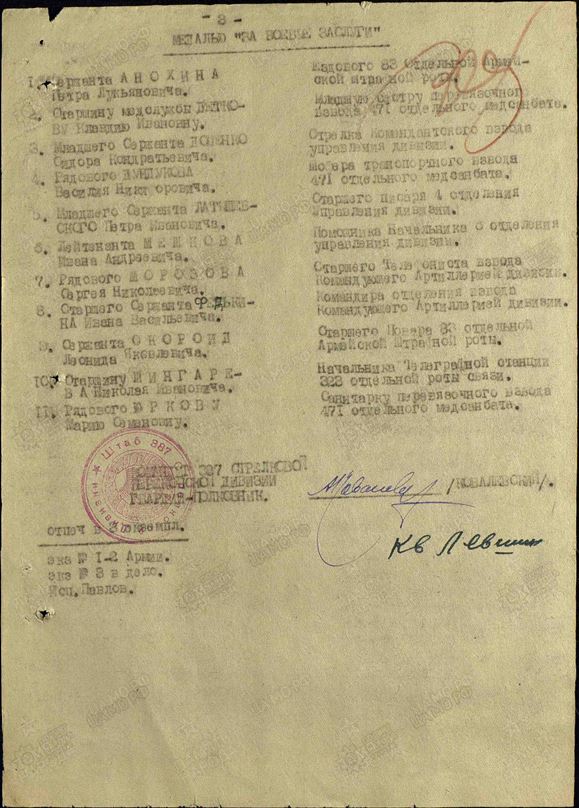 - 3 -
МЕДАЛЬЮ "ЗА БОЕВЫЕ ЗАСЛУГИ"
1. Сержанта АНОХИНА
Петра Лукьяновича.
Ездового 83 Отдельной Армей-
ской штрафной роты.
2. Старшину медслужбы
ВУ Клавдию Ивановну.
Младшую сестру перевязочного
взвода 471 отдельного медсанбата.
3. Младшего Сержанта ДОЦЕНКО
Сидора Кондратьевича.
Стрелка Комендантского взвода
управления дивизии.
4. Рядового
Василия Никифоровича.
транспортного взвода
471 отдельного медсанбата.
5. Младшего Сержанта ЛАТЫШЕВ-
СКОГО Петра Ивановича.
Старшего писаря 4 отделения
управления дивизии.
6. Лейтенанта МЕШКОВА
Ивана Андреевича.
Помощника Начальника 6 отделения
управления дивизии.
7. Рядового МОРОЗОВА
Сергея Николаевича.
Старшего Телефониста взвода
Командующего Артиллерией дивизии.
8. Старшего Сержанта ФЕДЬКИ-
НА Ивана Васильевича.
Командира отделения взвода
Командующего Артиллерией дивизии.
9. Сержанта СКОРОИД
Леонида Яковлевича.
Старшего Повара 83 отдельной
Армейской Штрафной роты.
10. Старшину ШИНГАРЕ-
ВА Николая Ивановича.
Начальника Телеграфной станции
323 отдельной роты связи.
11. Рядового ЮРКОВУ
Марию Семеновну.
Санитарку перевязочного взвода
471 отдельного медсанбата.
Штаб 387
КОМАНДИР 387 СТРЕЛКОВОЙ
ПЕРЕКОПСКОЙ ДИВИЗИИ
ГВАРДИИ-ПОЛКОВНИК.
/КОВАЛЕВСКИЙ/.
отпеч в 3 экземпл.
экз № 1-2 Армии.
экз № 3 в дело.
Исп. Павлов.